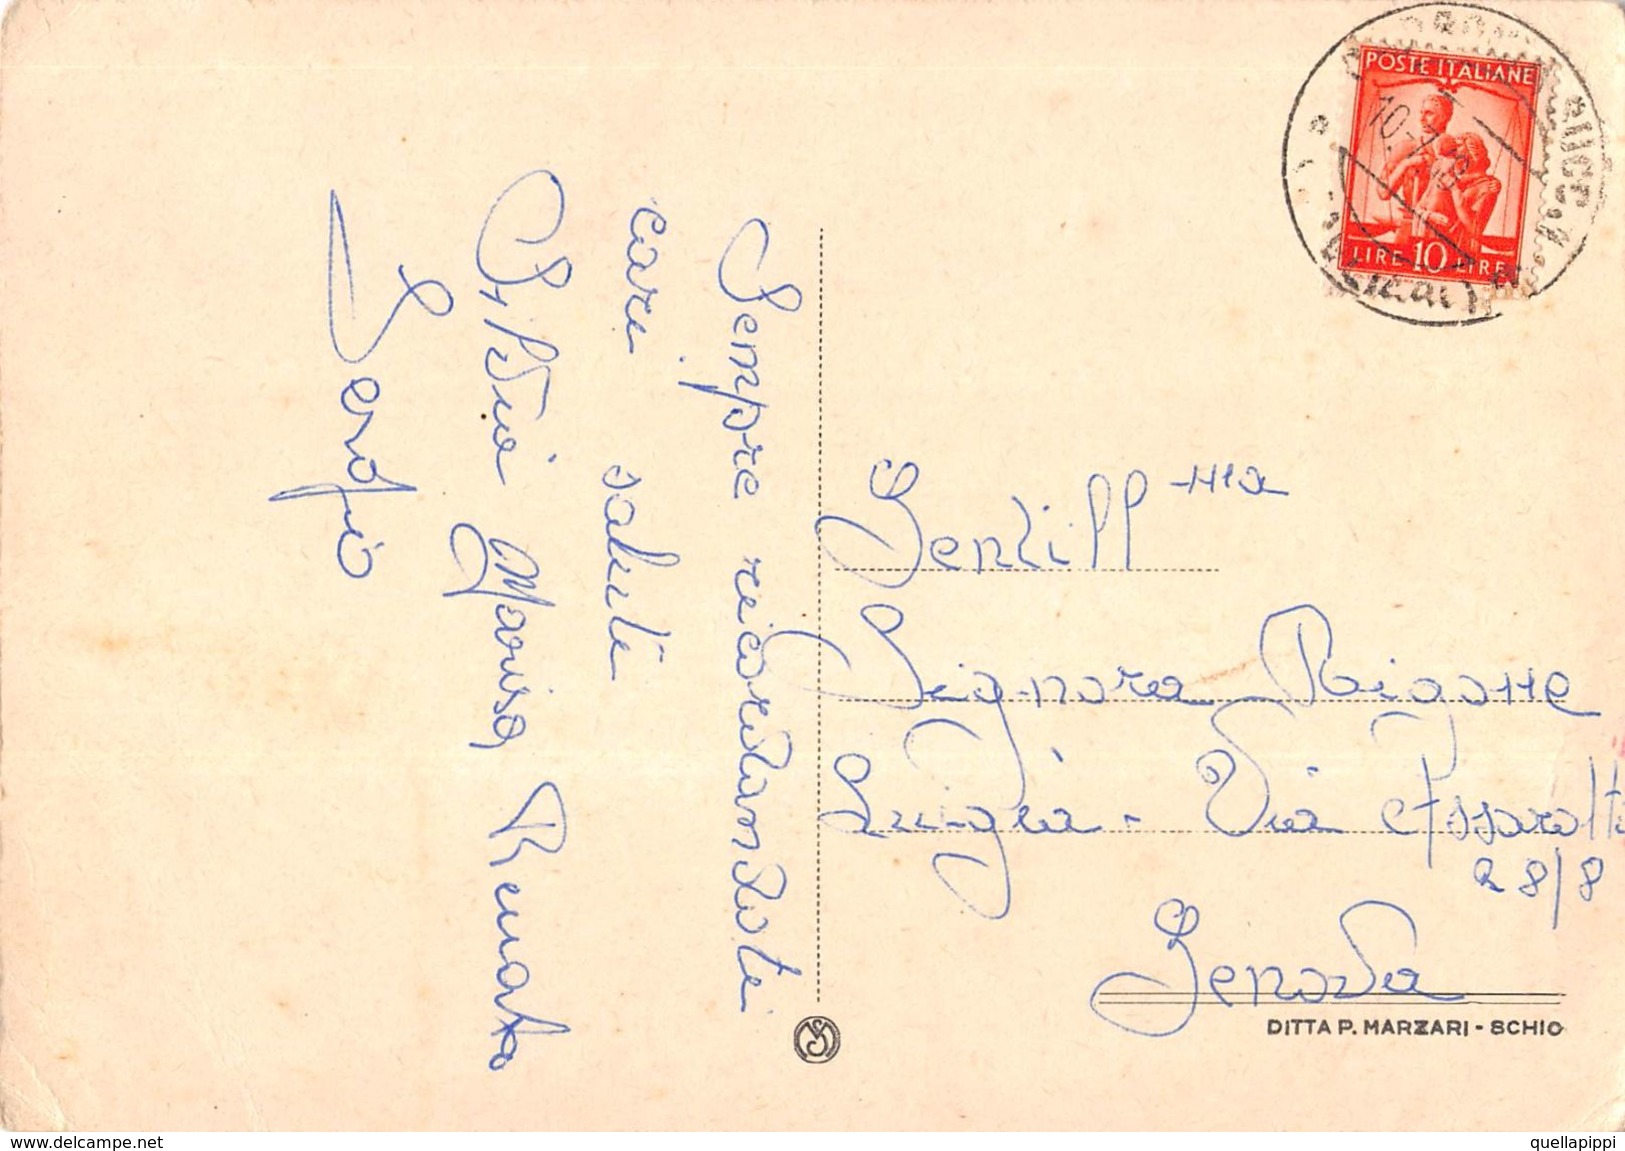 Sempre ricordandoti
cari saluti
Silvia Marisa Renato
Sergio
POSTE ITALIANE
10.7.
LIRE 10 LIRE
Gentill-ma
Signora
Luigia - Via Assarotti
28/8
Genova
DITTA P. MARZARI - SCHIO
www.delcampe.net
quellapippi